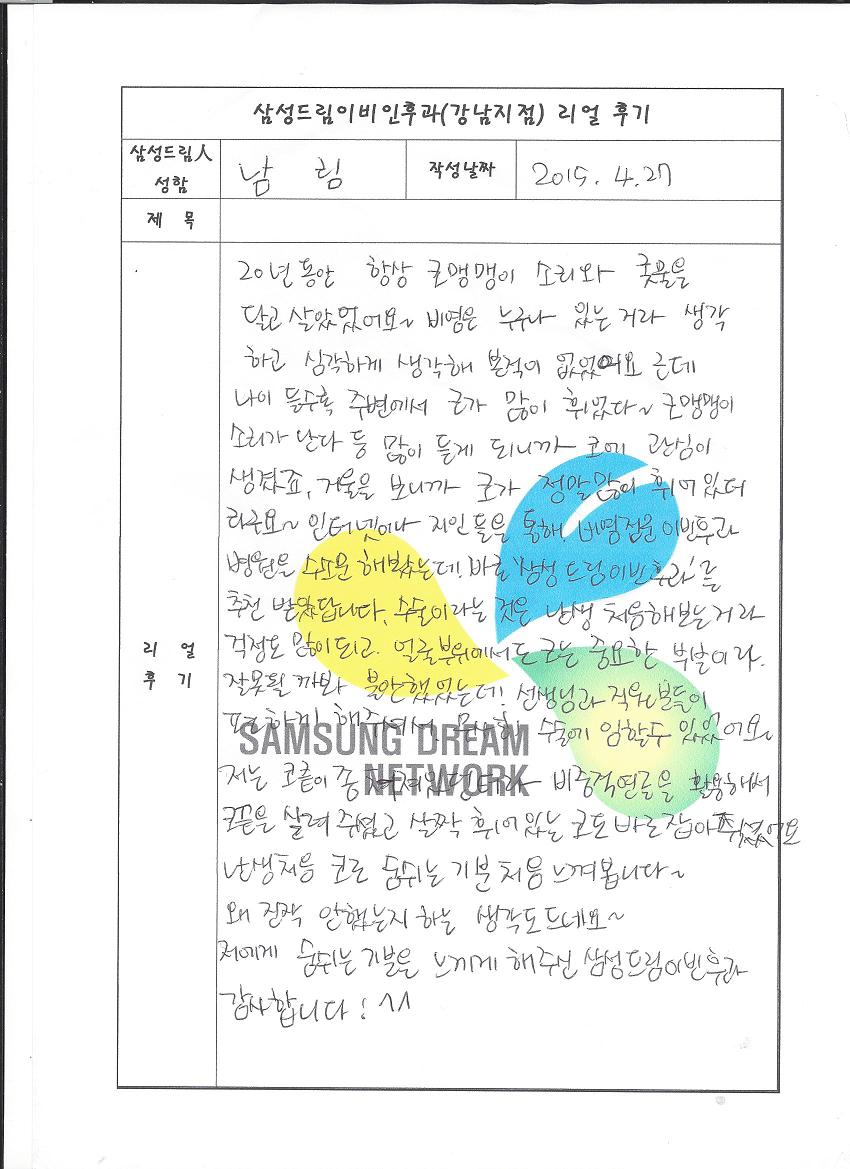 삼성드림이비인후과(강남지점) 리얼 후기
삼성드림人 성함
남 림
작성날짜
2015. 4. 27
제 목
리 얼 후 기
20년 동안 항상 코맹맹이 소리와 콧물을
달고 살았었어요~ 비염은 누구나 있는 거라 생각
하고 심각하게 생각해 본적이 없었어요 근데
나이 들수록 주변에서 코가 많이 휘었다~ 코맹맹이
소리가 난다 등 많이 듣게 되니까 코에 관심이
생겼죠, 거울을 보니까 코가 정말많이 휘어있더
라구요~ 인터넷이나 지인들을 통해, 비염전문이빈후과
병원을 수소문 해봤는데! 바로 '삼성드림이빈후과'를
추천 받았답니다, 수술이라는 것은 난생 처음해보는거라
걱정도 많이되고. 얼굴부위에서도 코는 중요한 부분이라.
잘못될까봐 불안했었는데! 선생님과 직원분들이
편하게 해주셔서 수술에 임할수 있었어요~
저는 코끝이 좀 비중격연골을 활용해서
코끝을 살려주셨고 살짝 휘어있는 코도 바로잡아주셨어요
난생처음 코로 숨쉬는 기분 처음 느껴봅니다~
왜 진작 안했는지 하는 생각도드네요~
저에게 숨쉬는 기분을 느끼게 해주신 삼성드림이빈후과
감사합니다! ^^
SAMSUNG DREAM
NETWORK